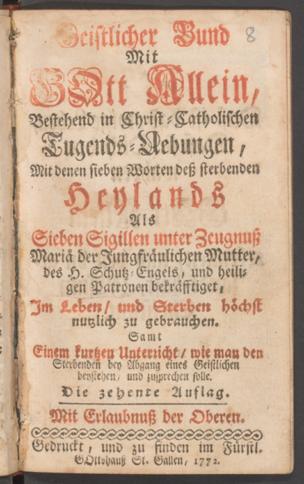 Geistlicher Bund
8
Mit
GOtt Allein,
Bestehend in Christ-Catholischen
Tugends-Uebungen,
Mit denen sieben Worten deß sterbenden
Heylands
Als
Sieben Sigillen unter Zeugnuß
Mariä der Jungfräulichen Mutter,
des H. Schutz-Engels, und heili-
gen Patronen bekräfftiget,
Im Leben/ und Sterben höchst
nutzlich zu gebrauchen.
Samt
Einem kurtzen Unterricht/ wie man den
Sterbenden bey Abgang eines Geistlichen
beystehen/ und zusprechen solle.
Die zehente Auflag.
Mit Erlaubnuß der Oberen.
Gedruckt, und zu finden im Fürstl.
GOttshauß St. Gallen, 1772.